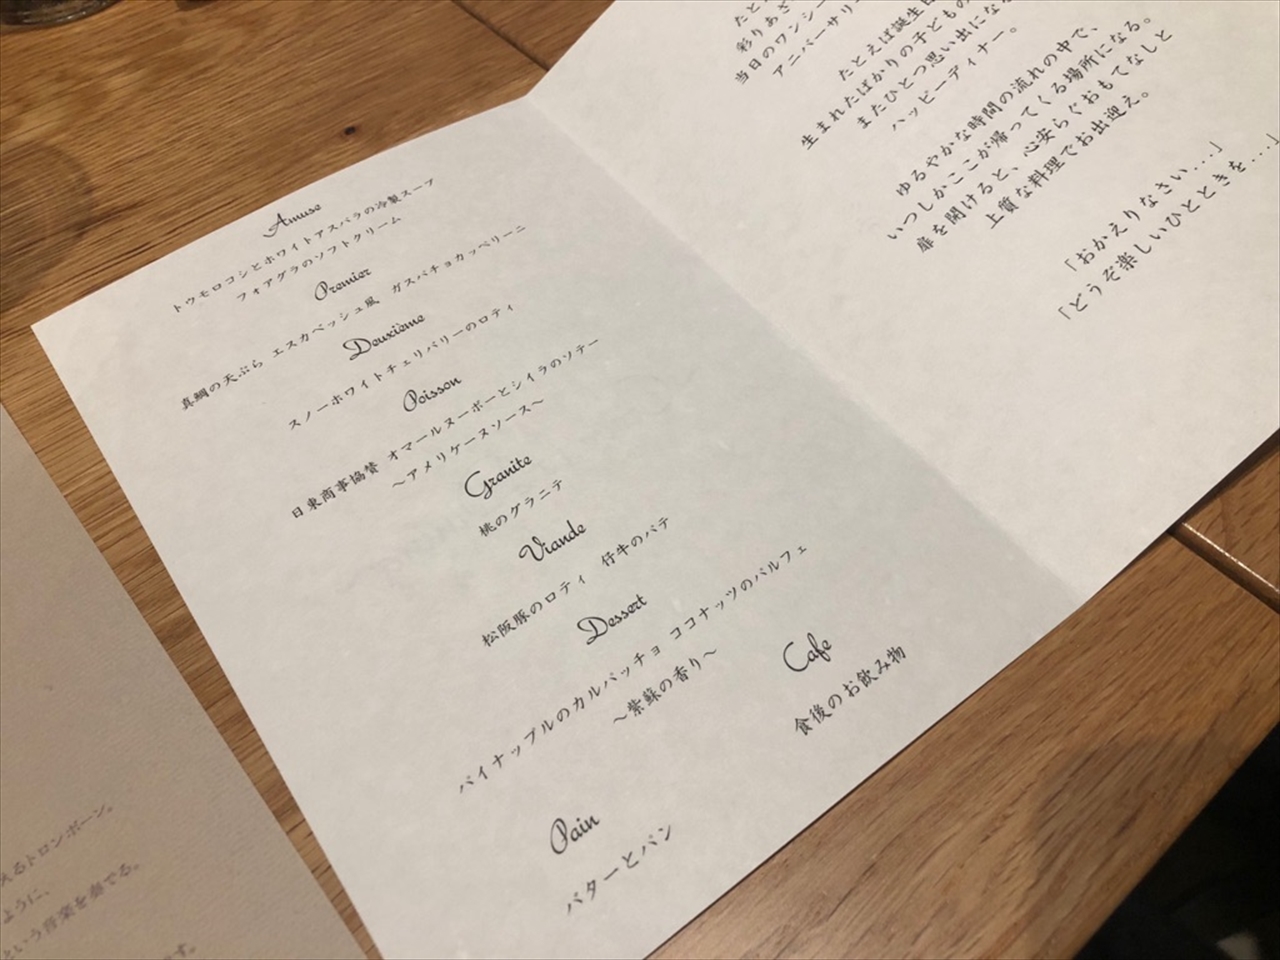 Amuse
トウモロコシとホワイトアスパラの冷製スープ
フォアグラのソフトクリーム
Premier
真鯛の天ぷら エスカベッシュ風 ガスパチョカッペリーニ
Deuxième
スノーホワイトチェリバリーのロティ
Poisson
日東商事協賛 オマールヌーボーとシイラのソテー
～アメリケーヌソース～
Granite
桃のグラニテ
Viande
松阪豚のロティ 仔牛のパテ
Dessert
パイナップルのカルパッチョ ココナッツのパルフェ
～紫蘇の香り～
Cafe
食後のお飲み物
Pain
バターとパン
彩りあざ
当日のワンシー
アニバーサリ
たとえば誕生日
生まれたばかりの子どもの
またひとつ思い出にな
ハッピーディナー。
ゆるやかな時間の流れの中で、
いつしかここが帰ってくる場所になる。
扉を開けると、心安らぐおもてなしと
上質な料理でお出迎え。
「おかえりなさい...」
「どうぞ楽しいひとときを...」
えるトロンボーン。
ように、
という音楽を奏でる。
です。